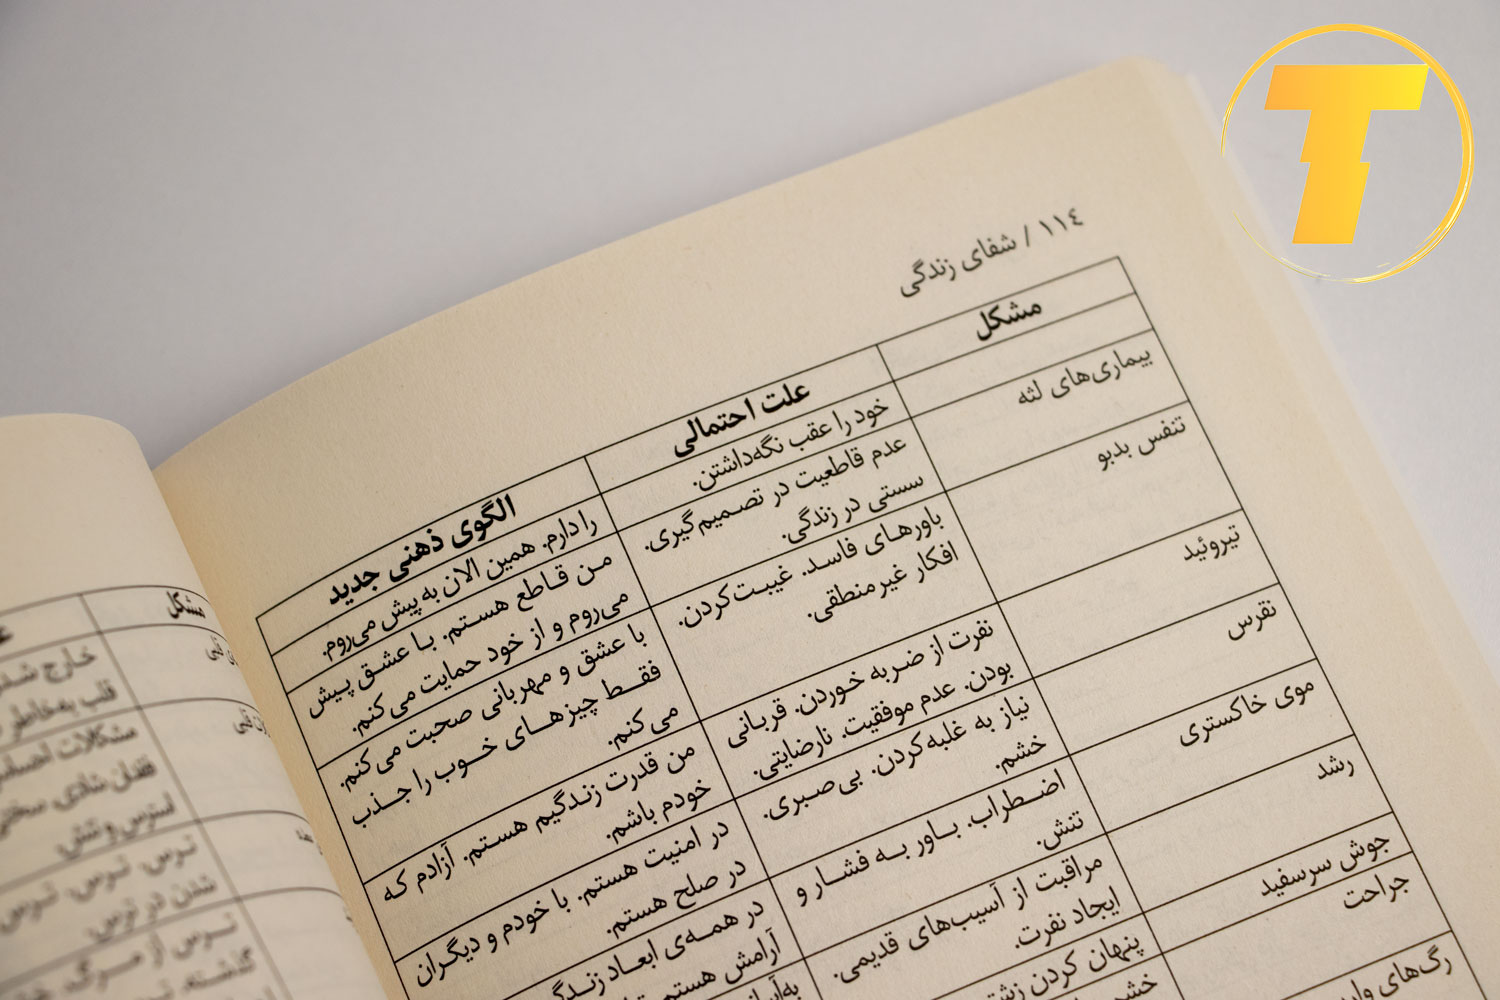 ١١٤ / شفای زندگی
مشکل
علت احتمالی
الگوی ذهنی جدید
خود را عقب نگه‌داشتن.
را دارم. همین الان به پیش می‌روم.
بیماری‌های لثه
عدم قاطعیت در تصمیم‌گیری.
سستی در زندگی.
من قاطع هستم. با عشق پیش
می‌روم و از خود حمایت می‌کنم.
تنفس بدبو
باورهای فاسد. غیبت‌کردن.
افکار غیرمنطقی.
با عشق و مهربانی صحبت می‌کنم.
فقط چیزهای خوب را جذب
می‌کنم.
تیروئید
نفرت از ضربه خوردن. قربانی
بودن. عدم موفقیت. نارضایتی.
من قدرت زندگیم هستم. آزادم که
خودم باشم.
نقرس
نیاز به غلبه‌کردن. بی‌صبری.
خشم.
در امنیت هستم. با خودم و دیگران
در صلح هستم.
موی خاکستری
اضطراب. باور به فشار و
تنش.
در همه‌ی ابعاد زندگی
آرامش هستم
رشد
مراقبت از آسیب‌های قدیمی.
ایجاد نفرت.
جوش سرسفید
پنهان کردن
جراحت
خشم
رگ‌های
مشکل
خارج شدن
قلب به‌خاطر
مشکلات احساسی
فقدان شادی. سختی
استرس و تنش.
ترس. ترس. ترس
شدن در ترس.
ترس از مرگ.
گذشته.
T